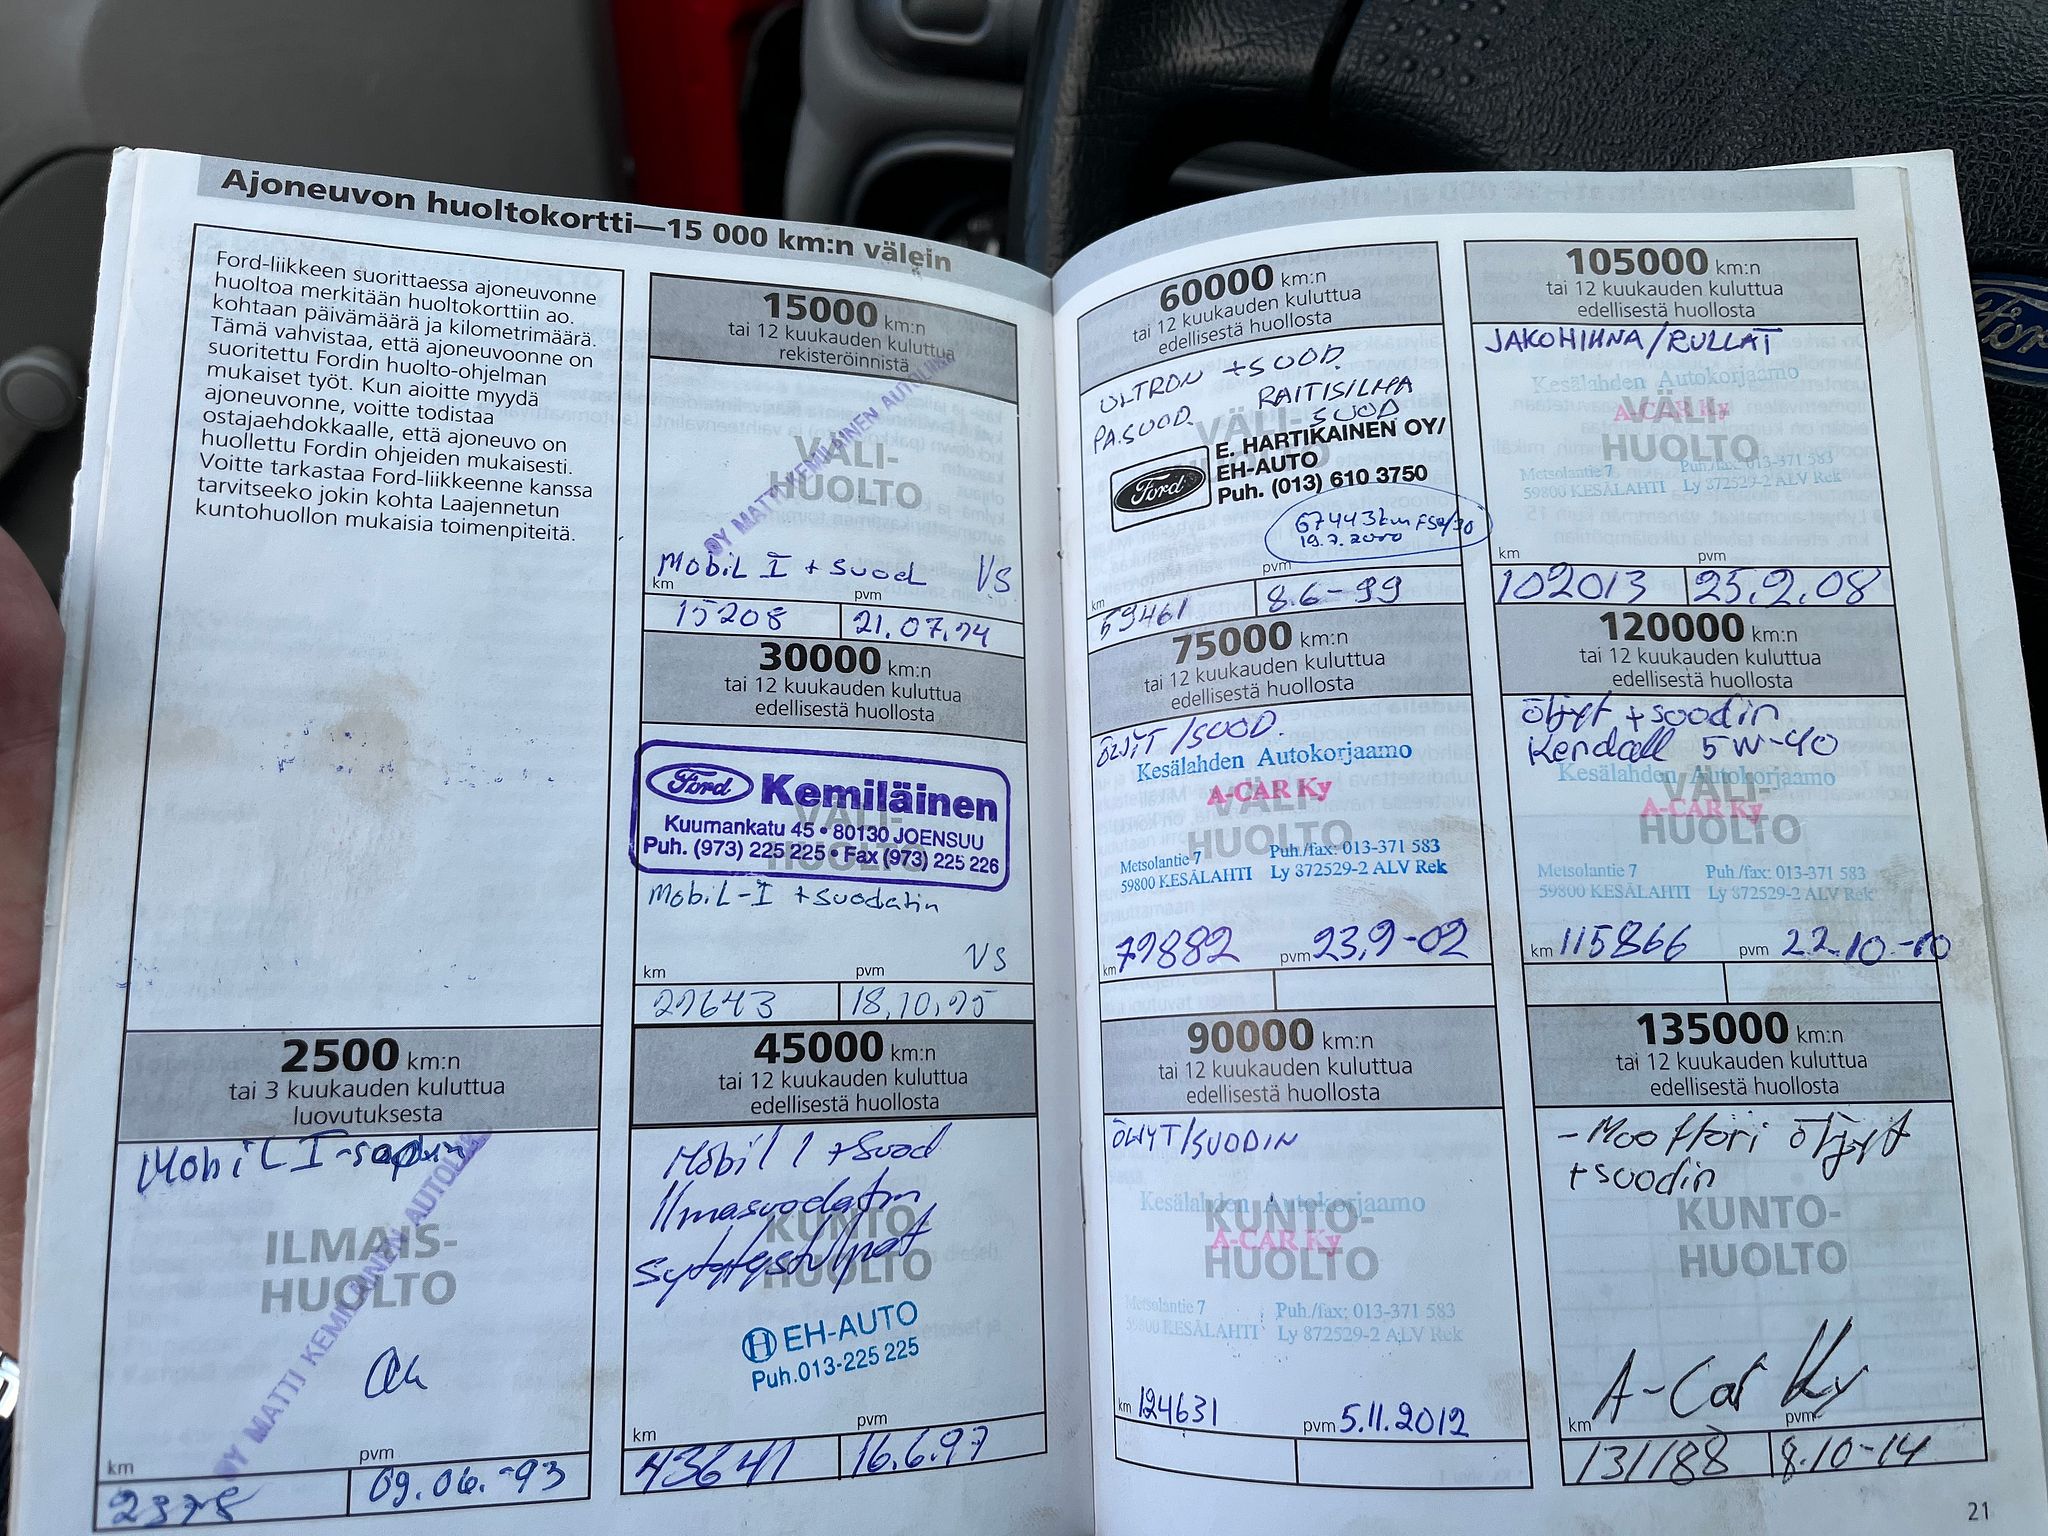 Ajoneuvon huoltokortti—15 000 km:n välein
Ford-liikkeen suorittaessa ajoneuvonne
huoltoa merkitään huoltokorttiin ao.
kohtaan päivämäärä ja kilometrimäärä.
Tämä vahvistaa, että ajoneuvoonne on
suoritettu Fordin huolto-ohjelman
mukaiset työt. Kun aioitte myydä
ajoneuvonne, voitte todistaa
ostajaehdokkaalle, että ajoneuvo on
huollettu Fordin ohjeiden mukaisesti.
Voitte tarkastaa Ford-liikkeenne kanssa
tarvitseeko jokin kohta Laajennetun
kuntohuollon mukaisia toimenpiteitä.
2500 km:n
tai 3 kuukauden kuluttua
luovutuksesta
Mobil I
ILMAIS-
HUOLTO
OY MATTI KEMILÄINEN AUTOLIIKE
km
pvm
2378
09.06.-93
15000 km:n
tai 12 kuukauden kuluttua
rekisteröinnistä
VÄLI-
HUOLTO
OY MATTI KEMILÄINEN AUTOLIIKE
Mobil I + suod VS
km
pvm
15208
21.07.94
30000 km:n
tai 12 kuukauden kuluttua
edellisestä huollosta
Ford Kemiläinen
VÄLI-
HUOLTO
Kuurnankatu 45 • 80130 JOENSUU
Puh. (973) 225 225 • Fax (973) 225 226
Mobil-I + suodatin
VS
km
pvm
27643
18.10.95
45000 km:n
tai 12 kuukauden kuluttua
edellisestä huollosta
Mobil 1 + suod
Ilmasuodatin
sytytystulpat
KUNTO-
HUOLTO
H EH-AUTO
Puh.013-225 225
km
pvm
43641
16.6.97
60000 km:n
tai 12 kuukauden kuluttua
edellisestä huollosta
ULTRON + SUOD.
PA.SUOD. RAITISILMA
SUOD
VÄLI-
Ford
E. HARTIKAINEN OY/
EH-AUTO
Puh. (013) 610 3750
67443km
19.7.2000
km
pvm
59461
8.6-99
75000 km:n
tai 12 kuukauden kuluttua
edellisestä huollosta
ÖLJYT/SUOD.
Kesälahden Autokorjaamo
A-CAR Ky
VÄLI-
HUOLTO
Metsolantie 7 Puh./fax: 013-371 583
59800 KESÄLAHTI Ly 872529-2 ALV Rek
km 79882 pvm 23.9-02
90000 km:n
tai 12 kuukauden kuluttua
edellisestä huollosta
ÖLJYT/SUODIN
Kesälahden Autokorjaamo
A-CAR Ky
KUNTO-
HUOLTO
Metsolantie 7 Puh./fax: 013-371 583
59800 KESÄLAHTI Ly 872529-2 ALV Rek
km 124631 pvm 5.11.2012
105000 km:n
tai 12 kuukauden kuluttua
edellisestä huollosta
JAKOHIHNA/RULLAT
Kesälahden Autokorjaamo
A-CAR Ky
VÄLI-
HUOLTO
Metsolantie 7 Puh./fax: 013-371 583
59800 KESÄLAHTI Ly 872529-2 ALV Rek
km
pvm
102013
25.2.08
120000 km:n
tai 12 kuukauden kuluttua
edellisestä huollosta
öljyt + suodin
Kendall 5W-40
Kesälahden Autokorjaamo
A-CAR Ky
VÄLI-
HUOLTO
Metsolantie 7 Puh./fax: 013-371 583
59800 KESÄLAHTI Ly 872529-2 ALV Rek
km 115866 pvm 22.10.-10
135000 km:n
tai 12 kuukauden kuluttua
edellisestä huollosta
- Moottori öljyt
+ suodin
KUNTO-
HUOLTO
A-Car Ky
km
pvm
131188
8.10-14
21
Ford